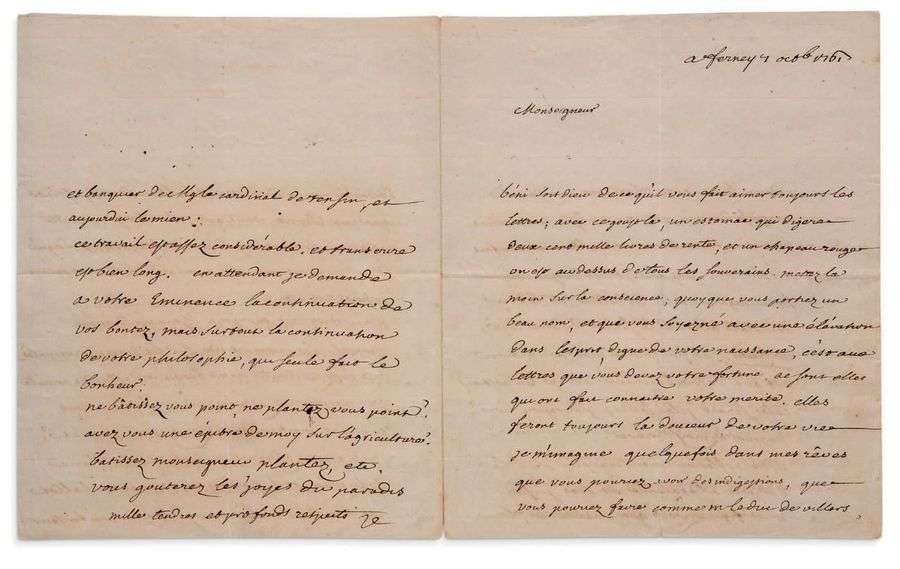 et banquier de Mg le cardinal de tensin, et
aujourdui le mien.
ce travail est assez considérable. et transcrire
est bien long. en attendant je demande
a votre Eminence la continuation de
vos bontez, mais surtout la continuation
de votre philosophie, qui seule fait le
bonheur.
ne bâtissez vous point, ne plantez vous point?
avez vous une épitre de moy sur l'agriculture?
batissez monseigneur plantez, etc.
vous gouterez les joyes du paradis
mille tendres et profonds respects
a ferney 7 octb 1761
Monseigneur
béni soit dieu de ce qu'il vous fait aimer toujours les
lettres; avec ce goust la, un estomac qui digere
deux cent mille livres de rente, et un chapeau rouge
on est au dessus de tous les souverains. metez la
main sur la conscience, quoyque vous portiez un
beau nom, et que vous soyez né avec une élévation
dans l'esprit, digne de votre naissance, c'est aux
lettres que vous devez votre fortune. ce sont elles
qui ont fait connaitre votre merite. elles
feront toujours la douceur de votre vie
je m'imagine quelquefois dans mes rêves
que vous pouriez avoir des indigestions, que
vous pouriez faire comme m le duc de villars,